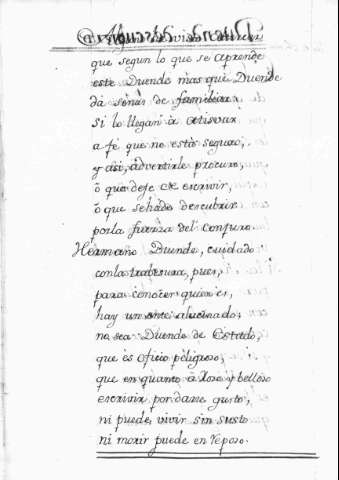 que segun lo que se aprende
este Duende mas que Duende
da señas de familiar:
Si lo llegan à atisvar
a fé que no està seguro,
y asi, advertirle procuro,
ò que deje de escrivir,
ò que se ha de descubrir
por la fuerza del Conjuro.
Hermano Duende, cuidado
con la travesura, pues,
para conocer quien es,
hay un ente alucinado;
no sea Duende de Estado,
que es Oficio peligroso;
que en quanto à y belloso
escrivir por darse gusto,
ni puede, vivir sin susto
ni morir puede en reposo.